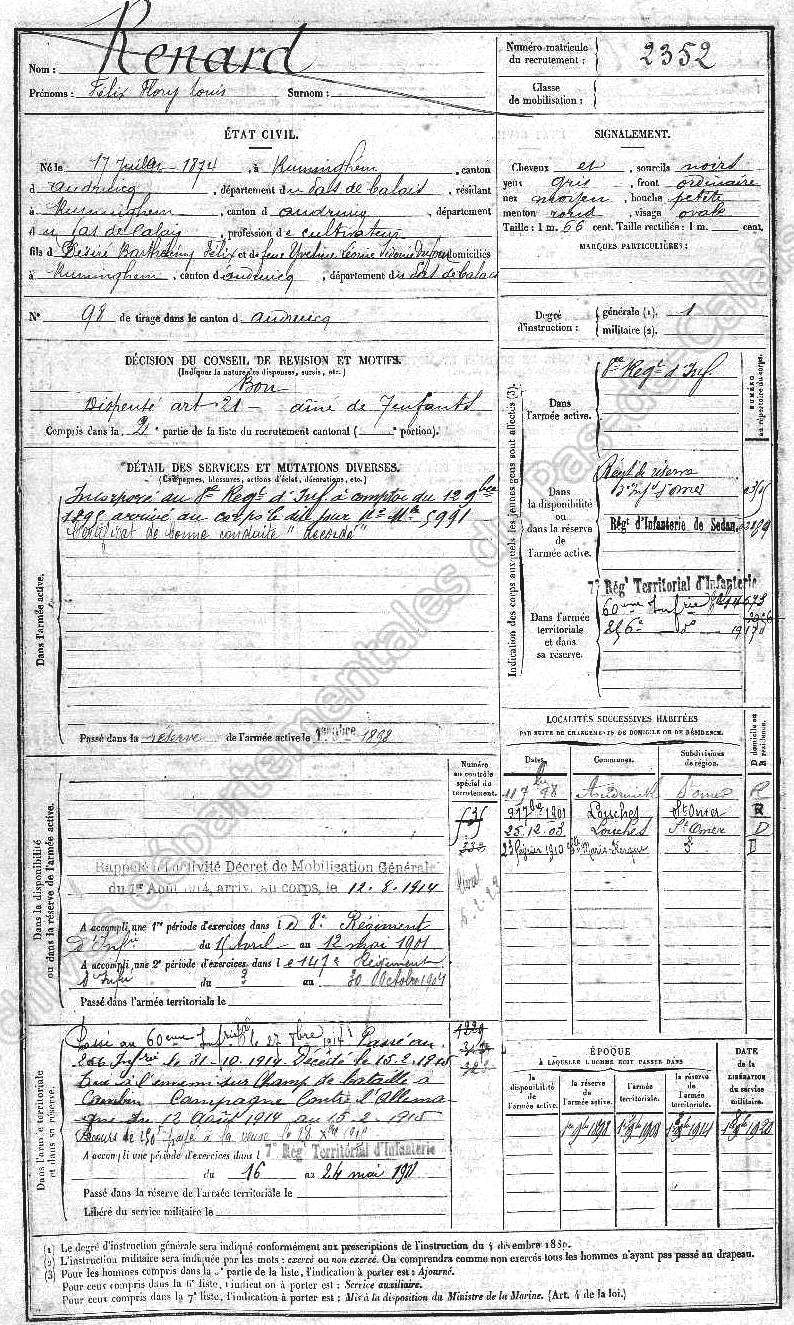 Nom : Renard
Prénoms : Félix Flory Louis Surnom :
Numéro matricule du recrutement : 2352
Classe de mobilisation :
ÉTAT CIVIL.
Né le 17 Juillet 1874, à Ruminghem, canton
d'audruicq, département du Pas de Calais, résidant
à Ruminghem, canton d'audruicq, département
du Pas de Calais, profession de cultivateur
fils de Désiré Barthélemy Félix et de feue domiciliés
à Ruminghem, canton d'audruicq, département du Pas de Calais
N° 98 de tirage dans le canton d audruicq
SIGNALEMENT.
Cheveux et, sourcils noirs
yeux gris, front ordinaire
nez moyen, bouche petite
menton rond, visage ovale
Taille : 1 m. 66 cent. Taille rectifiée : 1 m. cent.
MARQUES PARTICULIÈRES :
Degré d'instruction : générale (1). 1
militaire (2).
DÉCISION DU CONSEIL DE REVISION ET MOTIFS.
(Indiquer la nature des dispenses, sursis, etc.)
Bon
Dispensé art 21 - aîné de 7 enfants
Compris dans la 2e partie de la liste du recrutement cantonal ( portion).
DÉTAIL DES SERVICES ET MUTATIONS DIVERSES.
(Campagnes, blessures, actions d'éclat, décorations, etc.)
Dans l'armée active.
Incorporé au Regt d'Inf. à compter du 12 9bre
1895 arrivé au corps le dit jour No Mle 5991
Certificat de bonne conduite "accordé"
Passé dans la réserve de l'armée active le 1898
Indication des corps auxquels les jeunes gens sont affectés (3).
NUMÉRO au répertoire du corps.
Dans l'armée active.
Regt d'Inf.
Dans la disponibilité ou dans la réserve de l'armée active.
Régt de réserve
d'Inf St Omer
Régt d'Infanterie de Sedan.
Dans l'armée territoriale et dans sa réserve.
7e Régt Territorial d'Infanterie
60ème Infrie
256e do
LOCALITÉS SUCCESSIVES HABITÉES
PAR SUITE DE CHANGEMENTS DE DOMICILE OU DE RÉSIDENCE.
D domicile ou R résidence.
Dates. Communes. Subdivisions de région.
98 Audruick St omer R
9bre 1901 Louches St Omer R
25.12.03 Louches St Omer D
23 février 1910 Ste Marie Kerque do D
Numéro au contrôle spécial du recrutement.
Dans la disponibilité ou dans la réserve de l'armée active.
Rappelé à l'activité Décret de Mobilisation Générale
du 1er Août 1914, arrivé au corps, le 12.8.1914
A accompli une 1re période d'exercices dans le 8e Régiment
d'Infie du 15 Avril au 12 mai 1901
A accompli une 2e période d'exercices dans le 147e Régiment
d'Infie du ? au 30 Octobre 1904
Passé dans l'armée territoriale le
Dans l'armée territoriale et dans sa réserve.
Passé au 60eme Infrie le 27 1914. Passé au
256 Infrie le 31-10.1914. Décédé le 15.2.1915
tué à l'ennemi sur Champ de bataille à
Cambrin Campagne Contre l'Allema-
gne du 12 Août 1914 au 15.2.1915
Secours de 150f payé à la veuve le
A accompli une période d'exercices dans l 7e Régt Territorial d'Infanterie
du 16 au 24 mai 1911
Passé dans la réserve de l'armée territoriale le
Libéré du service militaire le
ÉPOQUE
À LAQUELLE L'HOMME DOIT PASSER DANS
DATE de la LIBÉRATION du service militaire.
la disponibilité de l'armée active. la réserve de l'armée active. l'armée territoriale. la réserve de l'armée territoriale.
1er 9bre 1898 1908 1914 1920
(1) Le degré d'instruction générale sera indiqué conformément aux prescriptions de l'instruction du 4 décembre 1889.
(2) L'instruction militaire sera indiquée par les mots : exercé ou non exercé. On comprendra comme non exercés tous les hommes n'ayant pas passé au drapeau.
(3) Pour les hommes compris dans la 5e partie de la liste, l'indication à porter est : Ajourné.
Pour ceux compris dans la 6e liste, l'indication à porter est : Service auxiliaire.
Pour ceux compris dans la 7e liste, l'indication à porter est : Mis à la disposition du Ministre de la Marine. (Art. 4 de la loi.)
Archives départementales du Pas-de-Calais